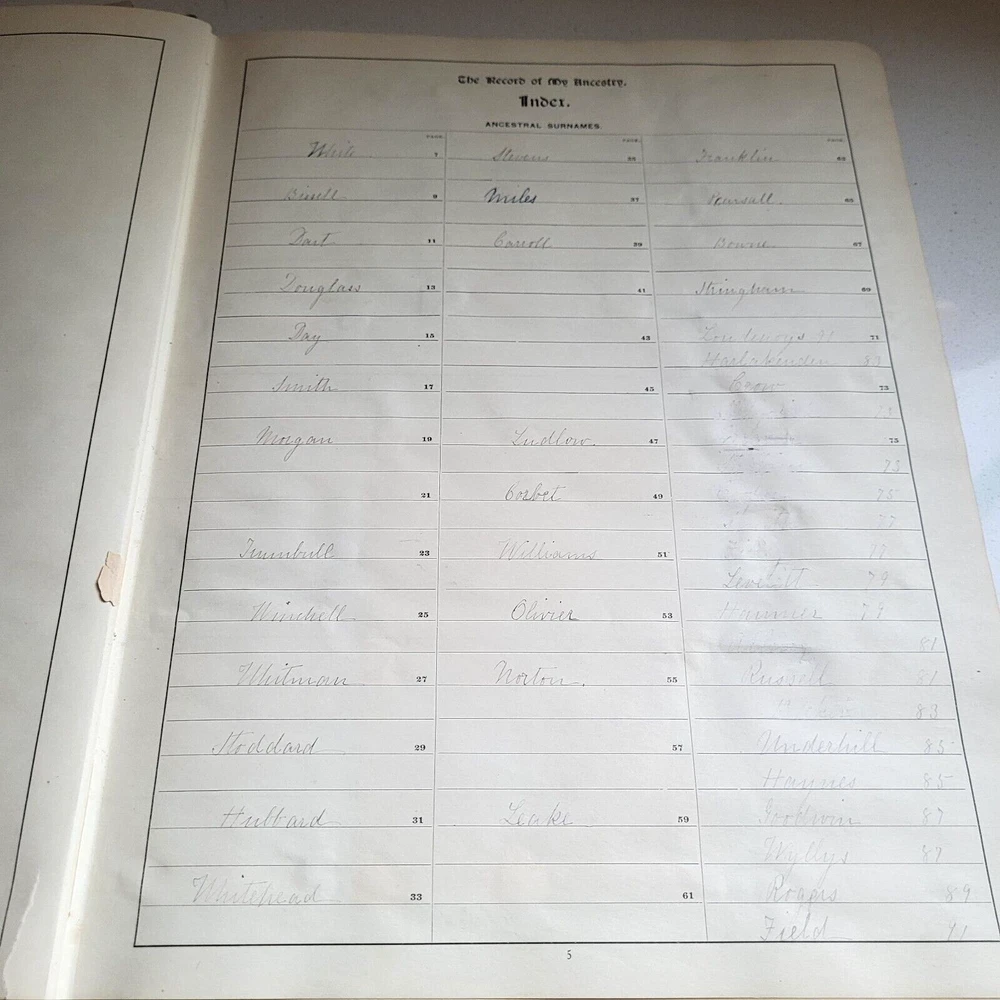 The Record of My Ancestry.
Index.
ANCESTRAL SURNAMES.
PAGE.
White 7
9
Dart 11
Douglass 13
Day 15
Smith 17
Morgan 19
21
Trumbull 23
Winchell 25
Whitman 27
Stoddard 29
Hubbard 31
Whitehead 33
PAGE.
Stevens 35
Miles 37
Carroll 39
41
43
45
Ludlow. 47
Corbet 49
Williams 51
Olivier 53
Norton. 55
57
Leake 59
61
PAGE.
Franklin 63
Pearsall. 65
Bowne 67
Stringham 69
91 71
Harlakenden 83
Crow 73
75
73
75
77
Leverett 79
Hammer 79
81
Russell 81
83
Underhill 85
Haynes 85
Goodwin 87
Wyllys 87
89
Field 91
5